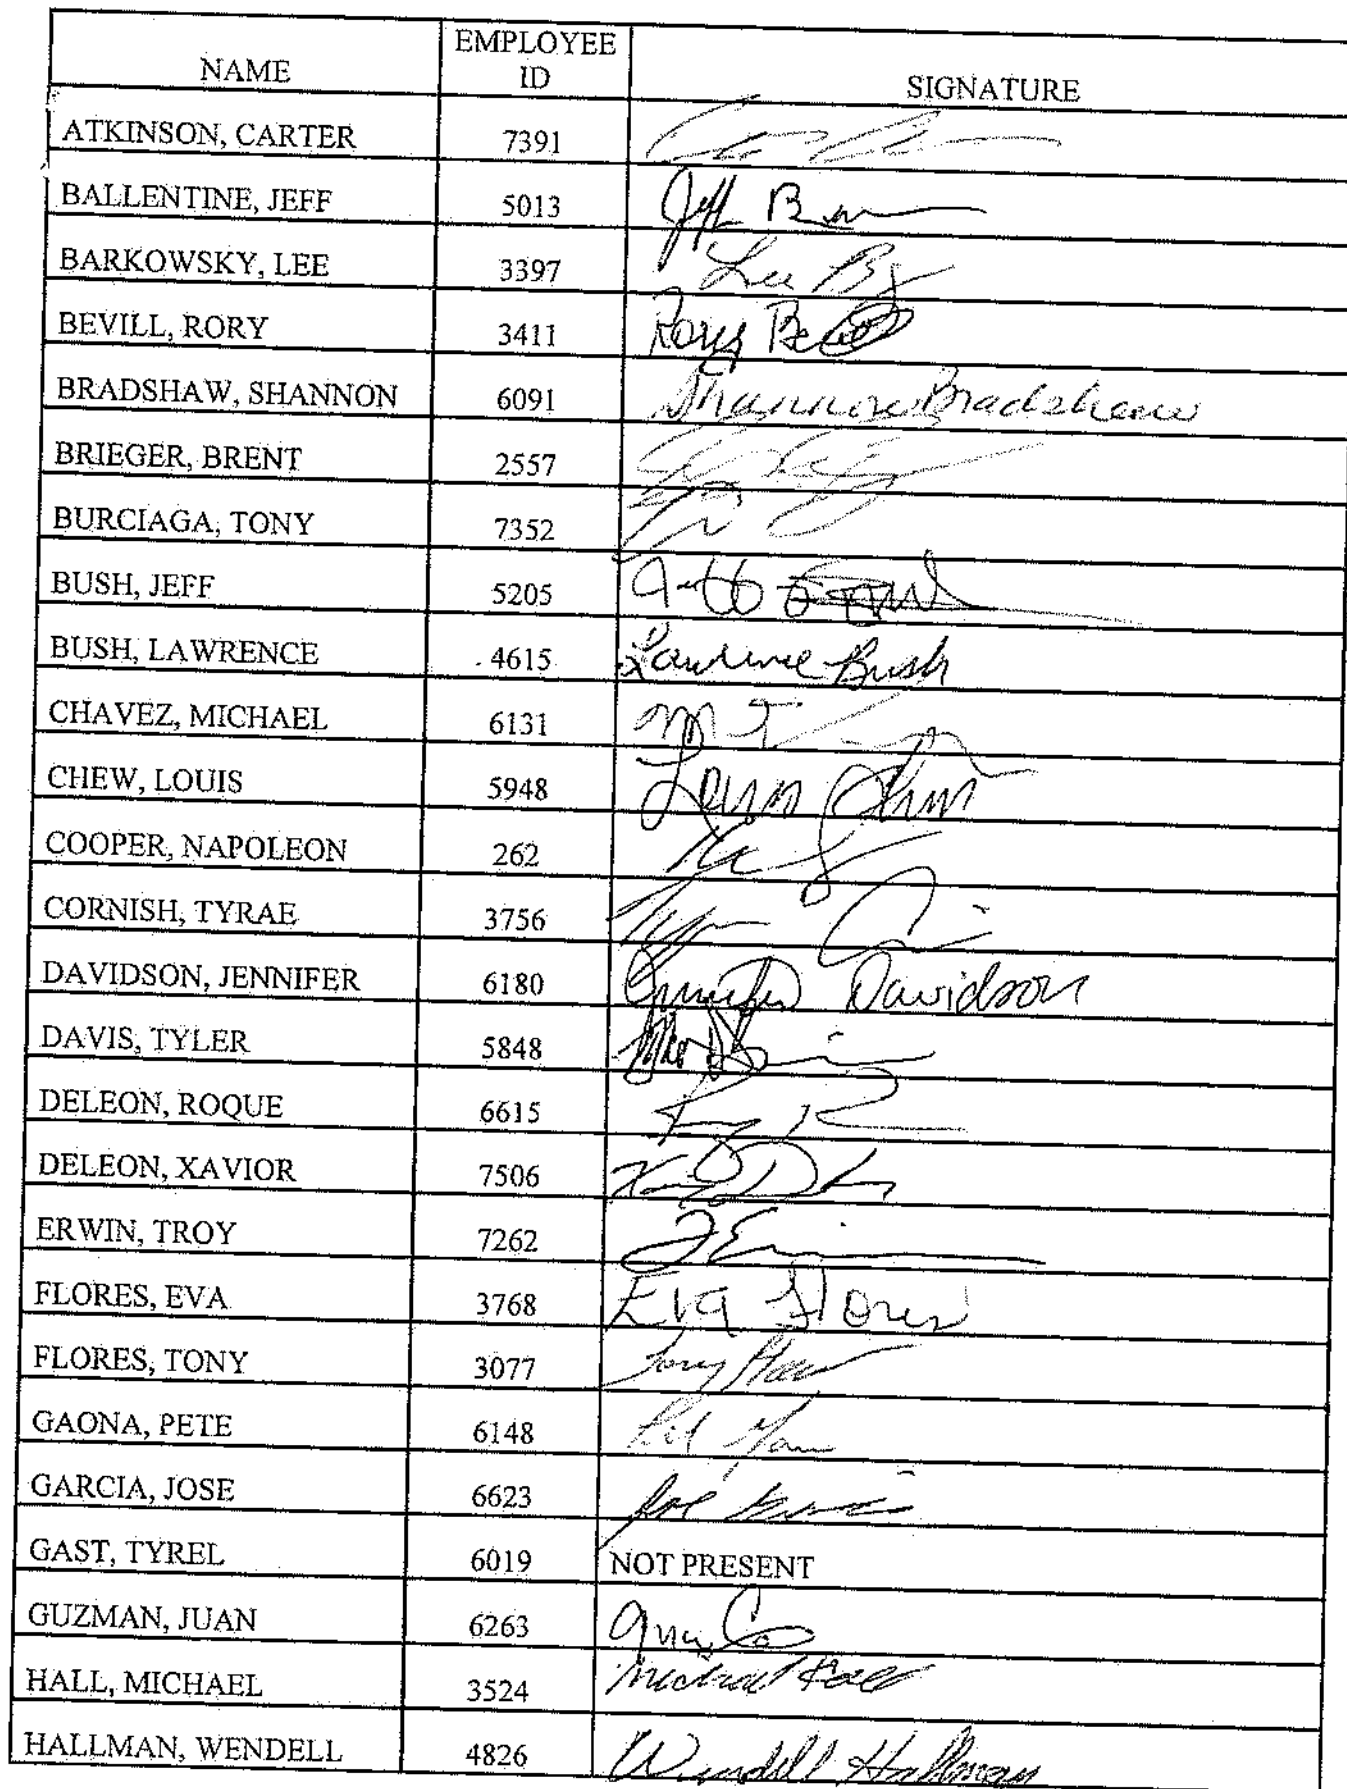 NAME EMPLOYEE ID SIGNATURE
ATKINSON, CARTER 7391
BALLENTINE, JEFF 5013 Jeff
BARKOWSKY, LEE 3397 Lee
BEVILL, RORY 3411 Rory
BRADSHAW, SHANNON 6091 Shannon Bradshaw
BRIEGER, BRENT 2557
BURCIAGA, TONY 7352
BUSH, JEFF 5205
BUSH, LAWRENCE 4615 Lawrence Bush
CHAVEZ, MICHAEL 6131
CHEW, LOUIS 5948
COOPER, NAPOLEON 262
CORNISH, TYRAE 3756
DAVIDSON, JENNIFER 6180 Jennifer Davidson
DAVIS, TYLER 5848
DELEON, ROQUE 6615
DELEON, XAVIOR 7506
ERWIN, TROY 7262
FLORES, EVA 3768 Eva Flores
FLORES, TONY 3077 Tony
GAONA, PETE 6148
GARCIA, JOSE 6623
GAST, TYREL 6019 NOT PRESENT
GUZMAN, JUAN 6263
HALL, MICHAEL 3524 Michael Hall
HALLMAN, WENDELL 4826 Wendell Hallman